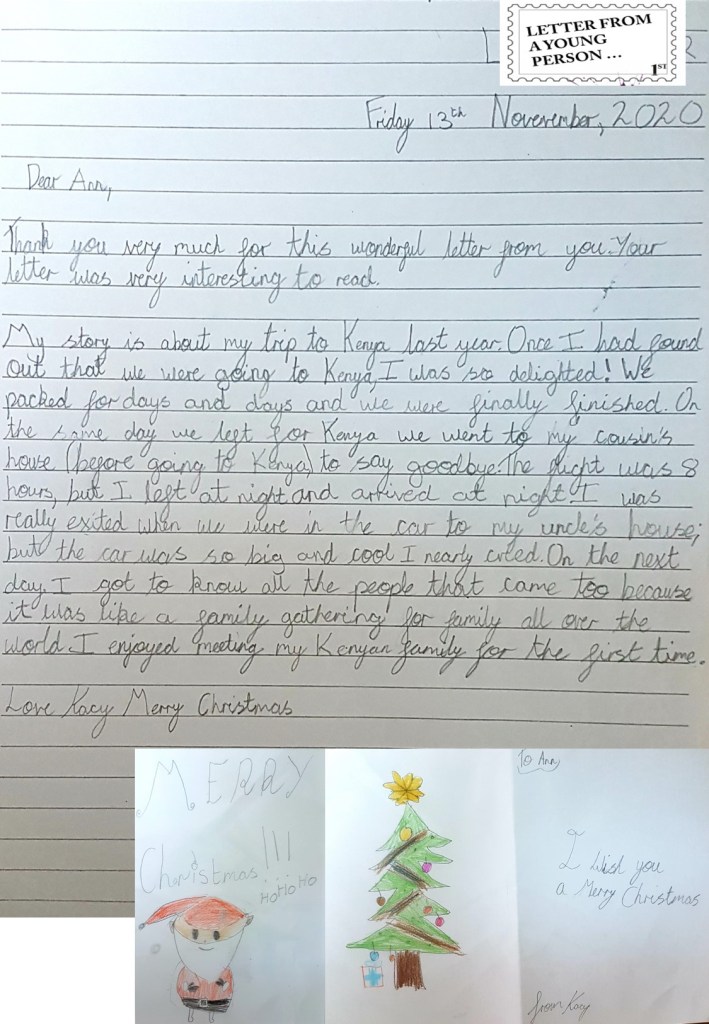 LETTER FROM
A YOUNG
PERSON ...
1ST
Friday 13th Novevember, 2020
Dear Ann,
Thank you very much for this wonderful letter from you. Your
letter was very interesting to read.
My story is about my trip to Kenya last year. Once I had found
out that we were going to Kenya, I was so delighted! We
packed for days and days and we were finally finished. On
the same day we left for Kenya we went to my cousin's
house (before going to Kenya) to say goodbye. The flight was 8
hours, but I left at night and arrived at night. I was
really exited when we were in the car to my uncle's house;
but the car was so big and cool I nearly cried. On the next
day, I got to know all the people that came too because
it was like a family gathering for family all over the
world. I enjoyed meeting my Kenyan family for the first time.
Love Kacy Merry Christmas
MERRY
Christmas!!!
HoHoHo
To Ann
I Wish you
a Merry Christmas
from Kacy